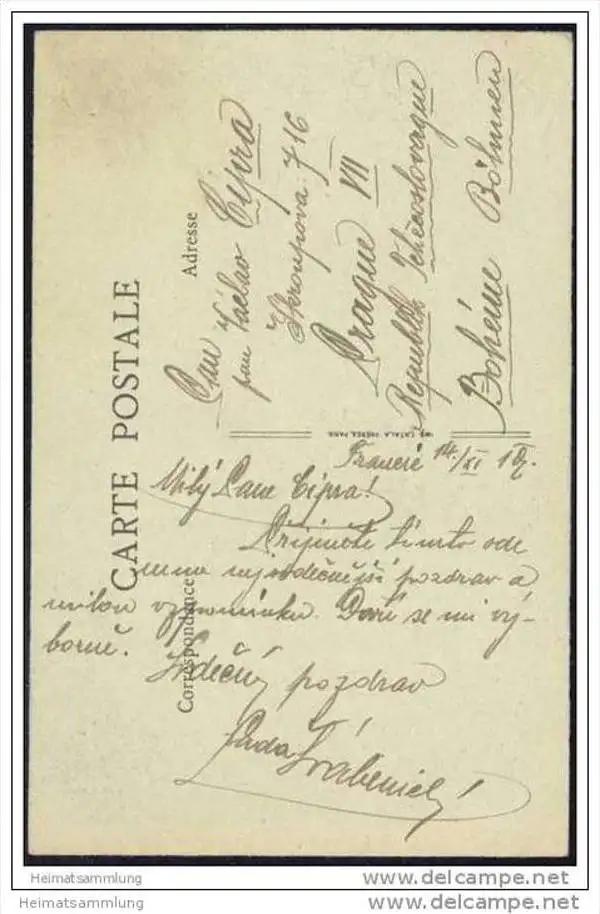 CARTE POSTALE
Correspondance
Adresse
Pan
pan Václav Cipra
Skroupova 716
Prague VII
Republik Tchécoslovaque
Bohéme Böhmen
IMP. CATALA FRERES, PARIS
Francie 14./XI 19.
Milý Pane Cipra!
Přijměte tímto ode
mne nejsrdečnější pozdrav a
milou vzpomínku. Daří se mi vý-
borně.
Srdečný pozdrav
Heimatsammlung
www.delcampe.net
Heimatsammlung
www.delcampe.net